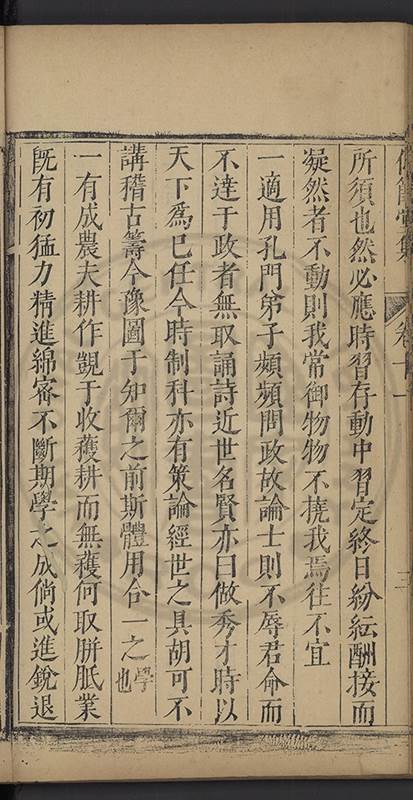 卷十一
所須也然必應時習存動中習定終日紛紜酬接而
凝然者不動則我常御物物不撓我焉往不宜
一適用孔門弟子頻頻問政故論士則不辱君命而
不達于政者無取誦詩近世名賢亦曰做秀才時以
天下為已任今時制科亦有策論經世之具胡可不
講稽古籌今豫圖于知爾之前斯體用合一之學也
一有成農夫耕作覬于收穫耕而無穫何取胼胝業
既有初猛力精進綿密不斷期學之成倘或進銳退